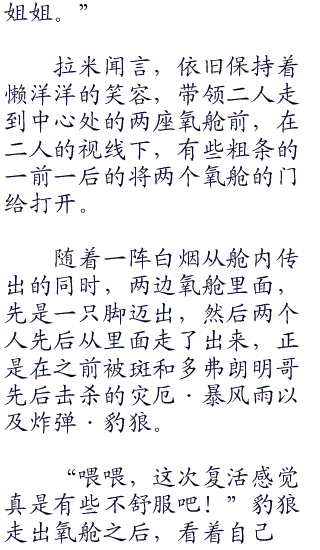 姐姐。”
拉米闻言，依旧保持着
懒洋洋的笑容，带领二人走
到中心处的两座氧舱前，在
二人的视线下，有些粗条的
一前一后的将两个氧舱的门
给打开。
随着一阵白烟从舱内传
出的同时，两边氧舱里面，
先是一只脚迈出，然后两个
人先后从里面走了出来，正
是在之前被斑和多弗朗明哥
先后击杀的灾厄·暴风雨以
及炸弹·豹狼。
“喂喂，这次复活感觉
真是有些不舒服吧！”豹狼
走出氧舱之后，看着自己